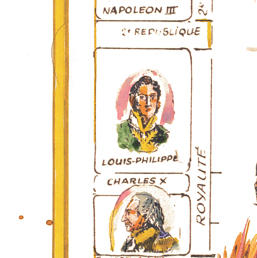 NAPOLEON III
2e REPUBLIQUE
LOUIS-PHILIPPE
CHARLES X
ROYAUTÉ